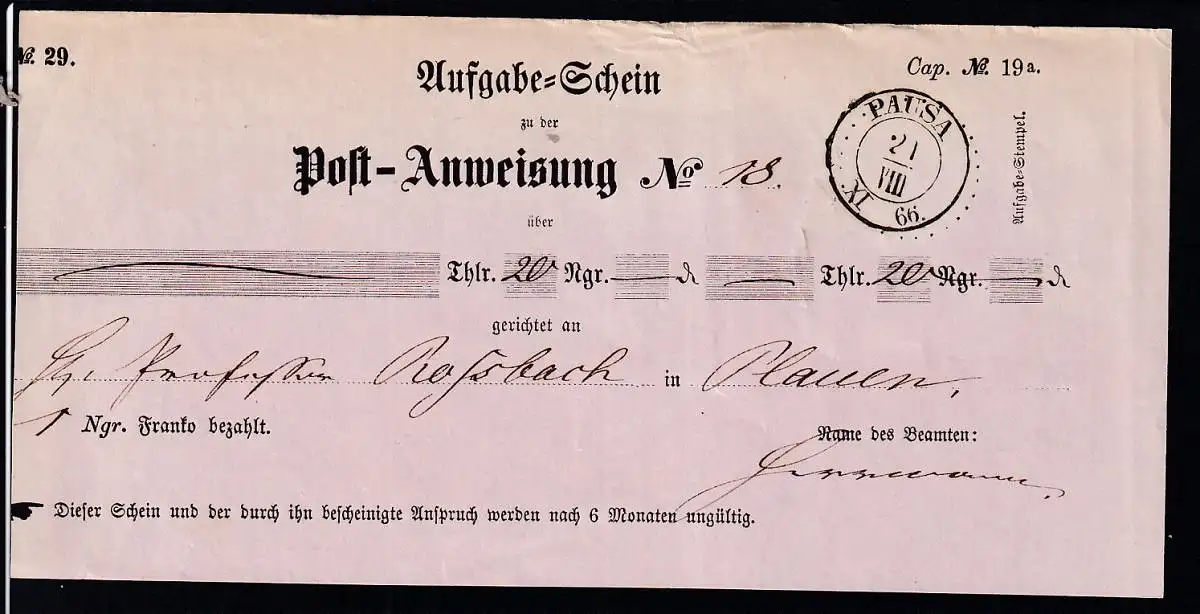 No. 29.
Cap. No. 19a.
Aufgabe-Schein
zu der
Post-Anweisung No 18.
PAUSA
21
VIII
XI 66.
Aufgabe-Stempel.
über
Thlr. 20 Ngr. — ₰ — Thlr. 20 Ngr. — ₰
gerichtet an
Professor Roßbach in Plauen,
1 Ngr. Franko bezahlt.
Name des Beamten:
Herrmann.
Dieser Schein und der durch ihn bescheinigte Anspruch werden nach 6 Monaten ungültig.